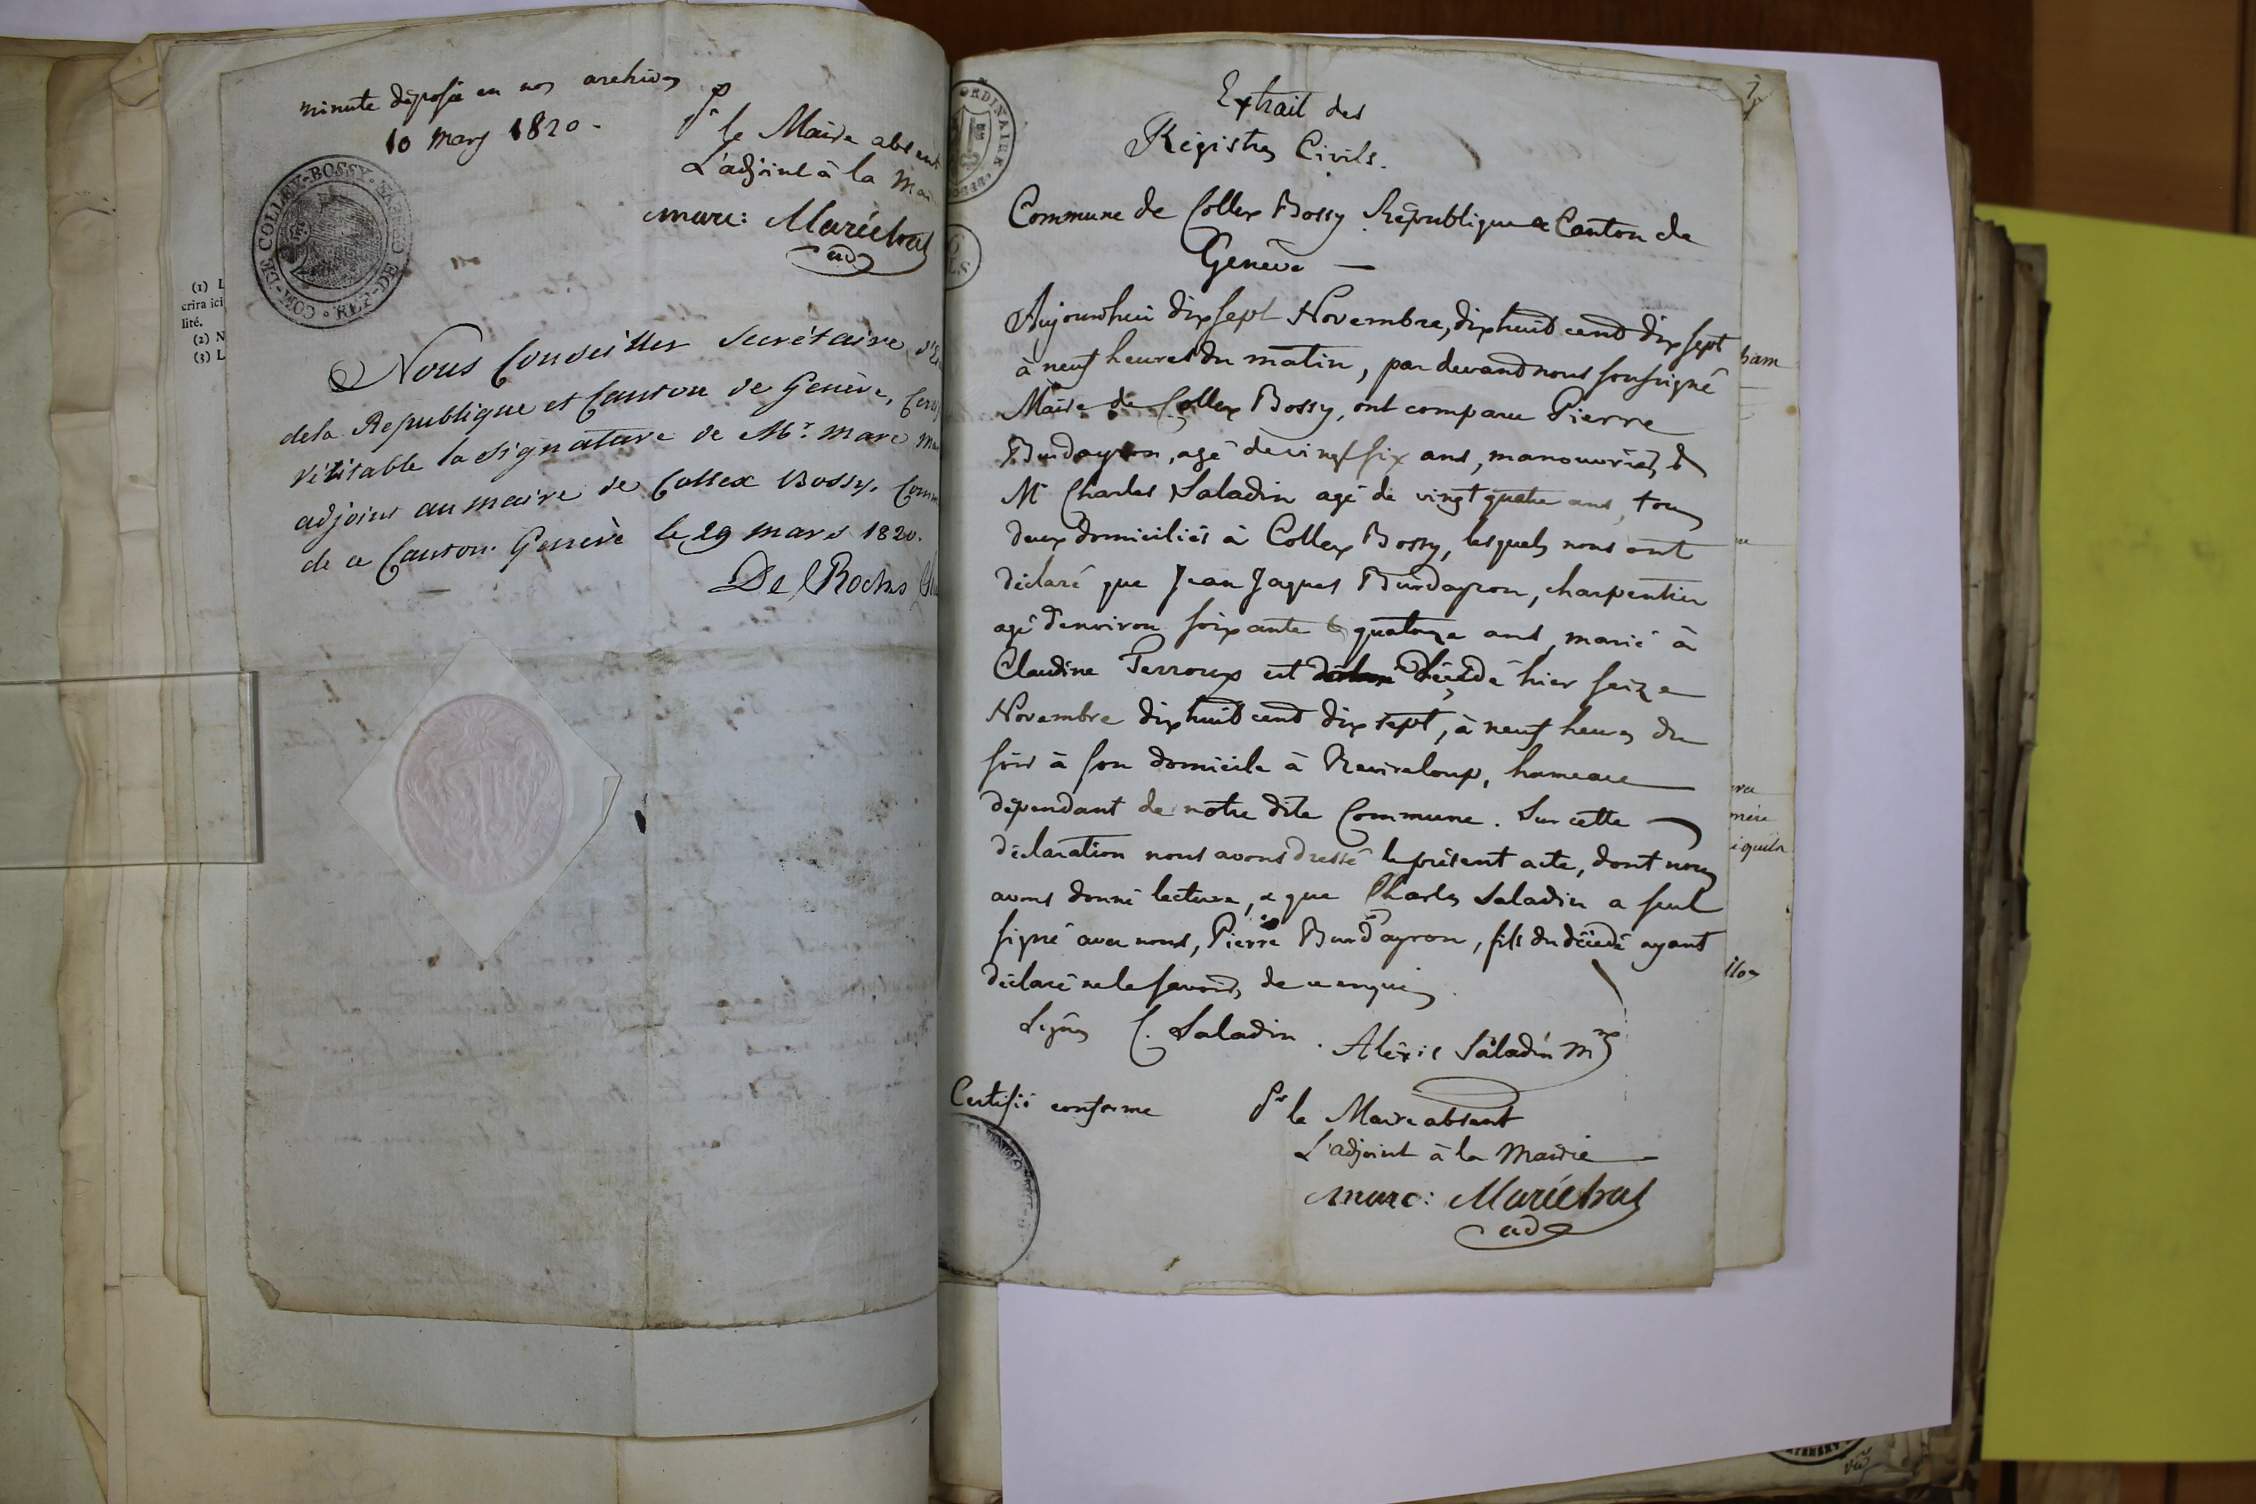 minute déposée en nos archives
10 Mars 1820.
Pr le Maire absent
L'adjoint à la Mai
marc: Mariétraz
adj
COM. DE COLLEX-BOSSY.
REP. DE GENEVE
(1) L
crira ici
lité.
(2) N
(3) L
Nous Conseiller Secrétaire d'E
dela République et Canton de Genève, Cer
véritable la signature de Mr. Marc Ma
adjoint au maire de Collex Bossy, Comm
de ce Canton. Genève le 29 mars 1820.
De Roches
ORDINAIRE
Extrait des
Régistres Civils.
Commune de Collex Bossy République & Canton de
Genève —
Aujourdhui dix sept Novembre, dixhuit cent dix sept
à neuf heures du matin, par devand nous soussigné
Maire de Collex Bossy, ont comparu Pierre
Burdayron, agé de vingt six ans, manouvrier, &
Mr Charles Saladin agé de vingt quatre ans, tous
deux domiciliés à Collex Bossy, lesquels nous ont
déclaré que Jean Jaques Burdayron, charpentier
agé d'environ soixante & quatorze ans, marié à
Claudine Perroux est décédé hier seize
Novembre dixhuit cent dix sept, à neuf heures du
soir à son domicile à Revireloup, hameau
dépendant de notre dite Commune. Sur cette
déclaration nous avons dressé le présent acte, dont nous
avons donné lecture, & que Charles Saladin a seul
signé avec nous, Pierre Burdayron, fils du décédé ayant
déclaré ne le savoir, de ce enquis.
Signés C. Saladin. Aléxis Saladin mre
Certifié conforme
Pr le Maire absent
L'adjoint à la Mairie
marc: Mariétraz
adj